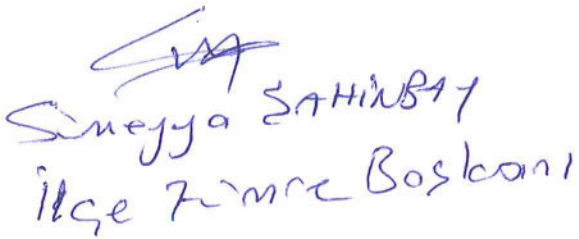 Sümeyya ŞAHİNBAY
İlçe Zümre Başkanı